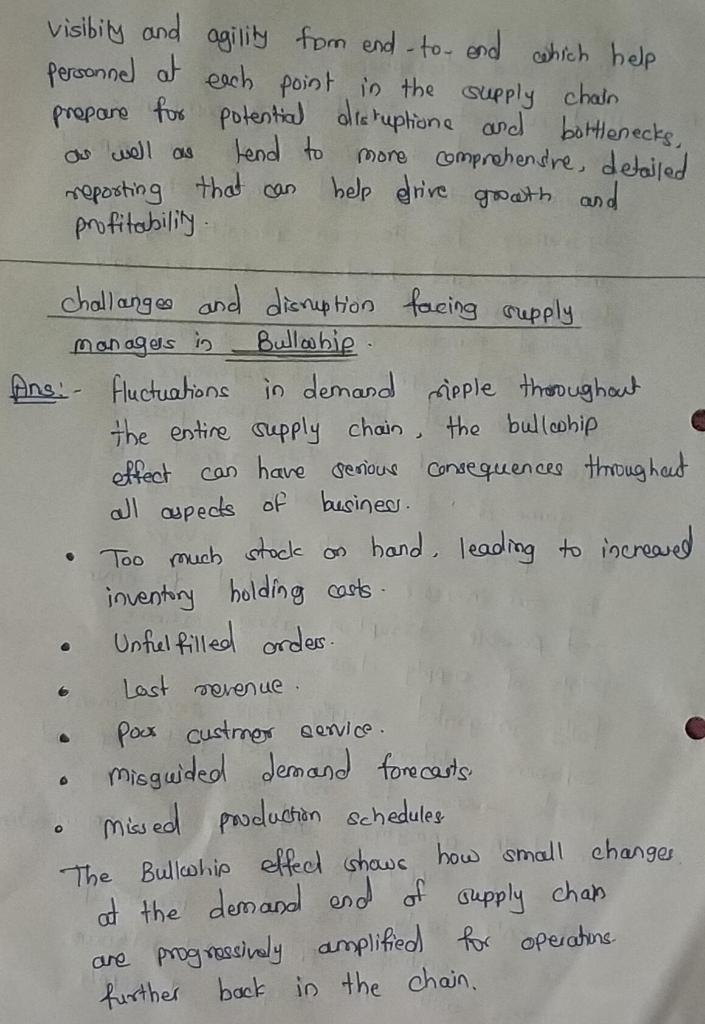 visibity and agility from end-to-end which help
personnel at each point in the supply chain
prepare for potential disruptions and bottlenecks,
as well as tend to more comprehensive, detailed
reporting that can help drive growth and
profitability.
challanges and disruption facing supply
managers in Bullwhip.
Ans:- fluctuations in demand ripple throughout
the entire supply chain, the bullwhip
effect can have serious consequences throughout
all aspects of business.
• Too much stock on hand, leading to increased
inventory holding costs.
• Unfulfilled orders.
• Lost revenue.
• Poor custmer service.
• misguided demand forecasts.
• missed production schedules
The Bullwhip effect shows how small changes
at the demand end of supply chan
are progressively amplified for operations
further back in the chain.